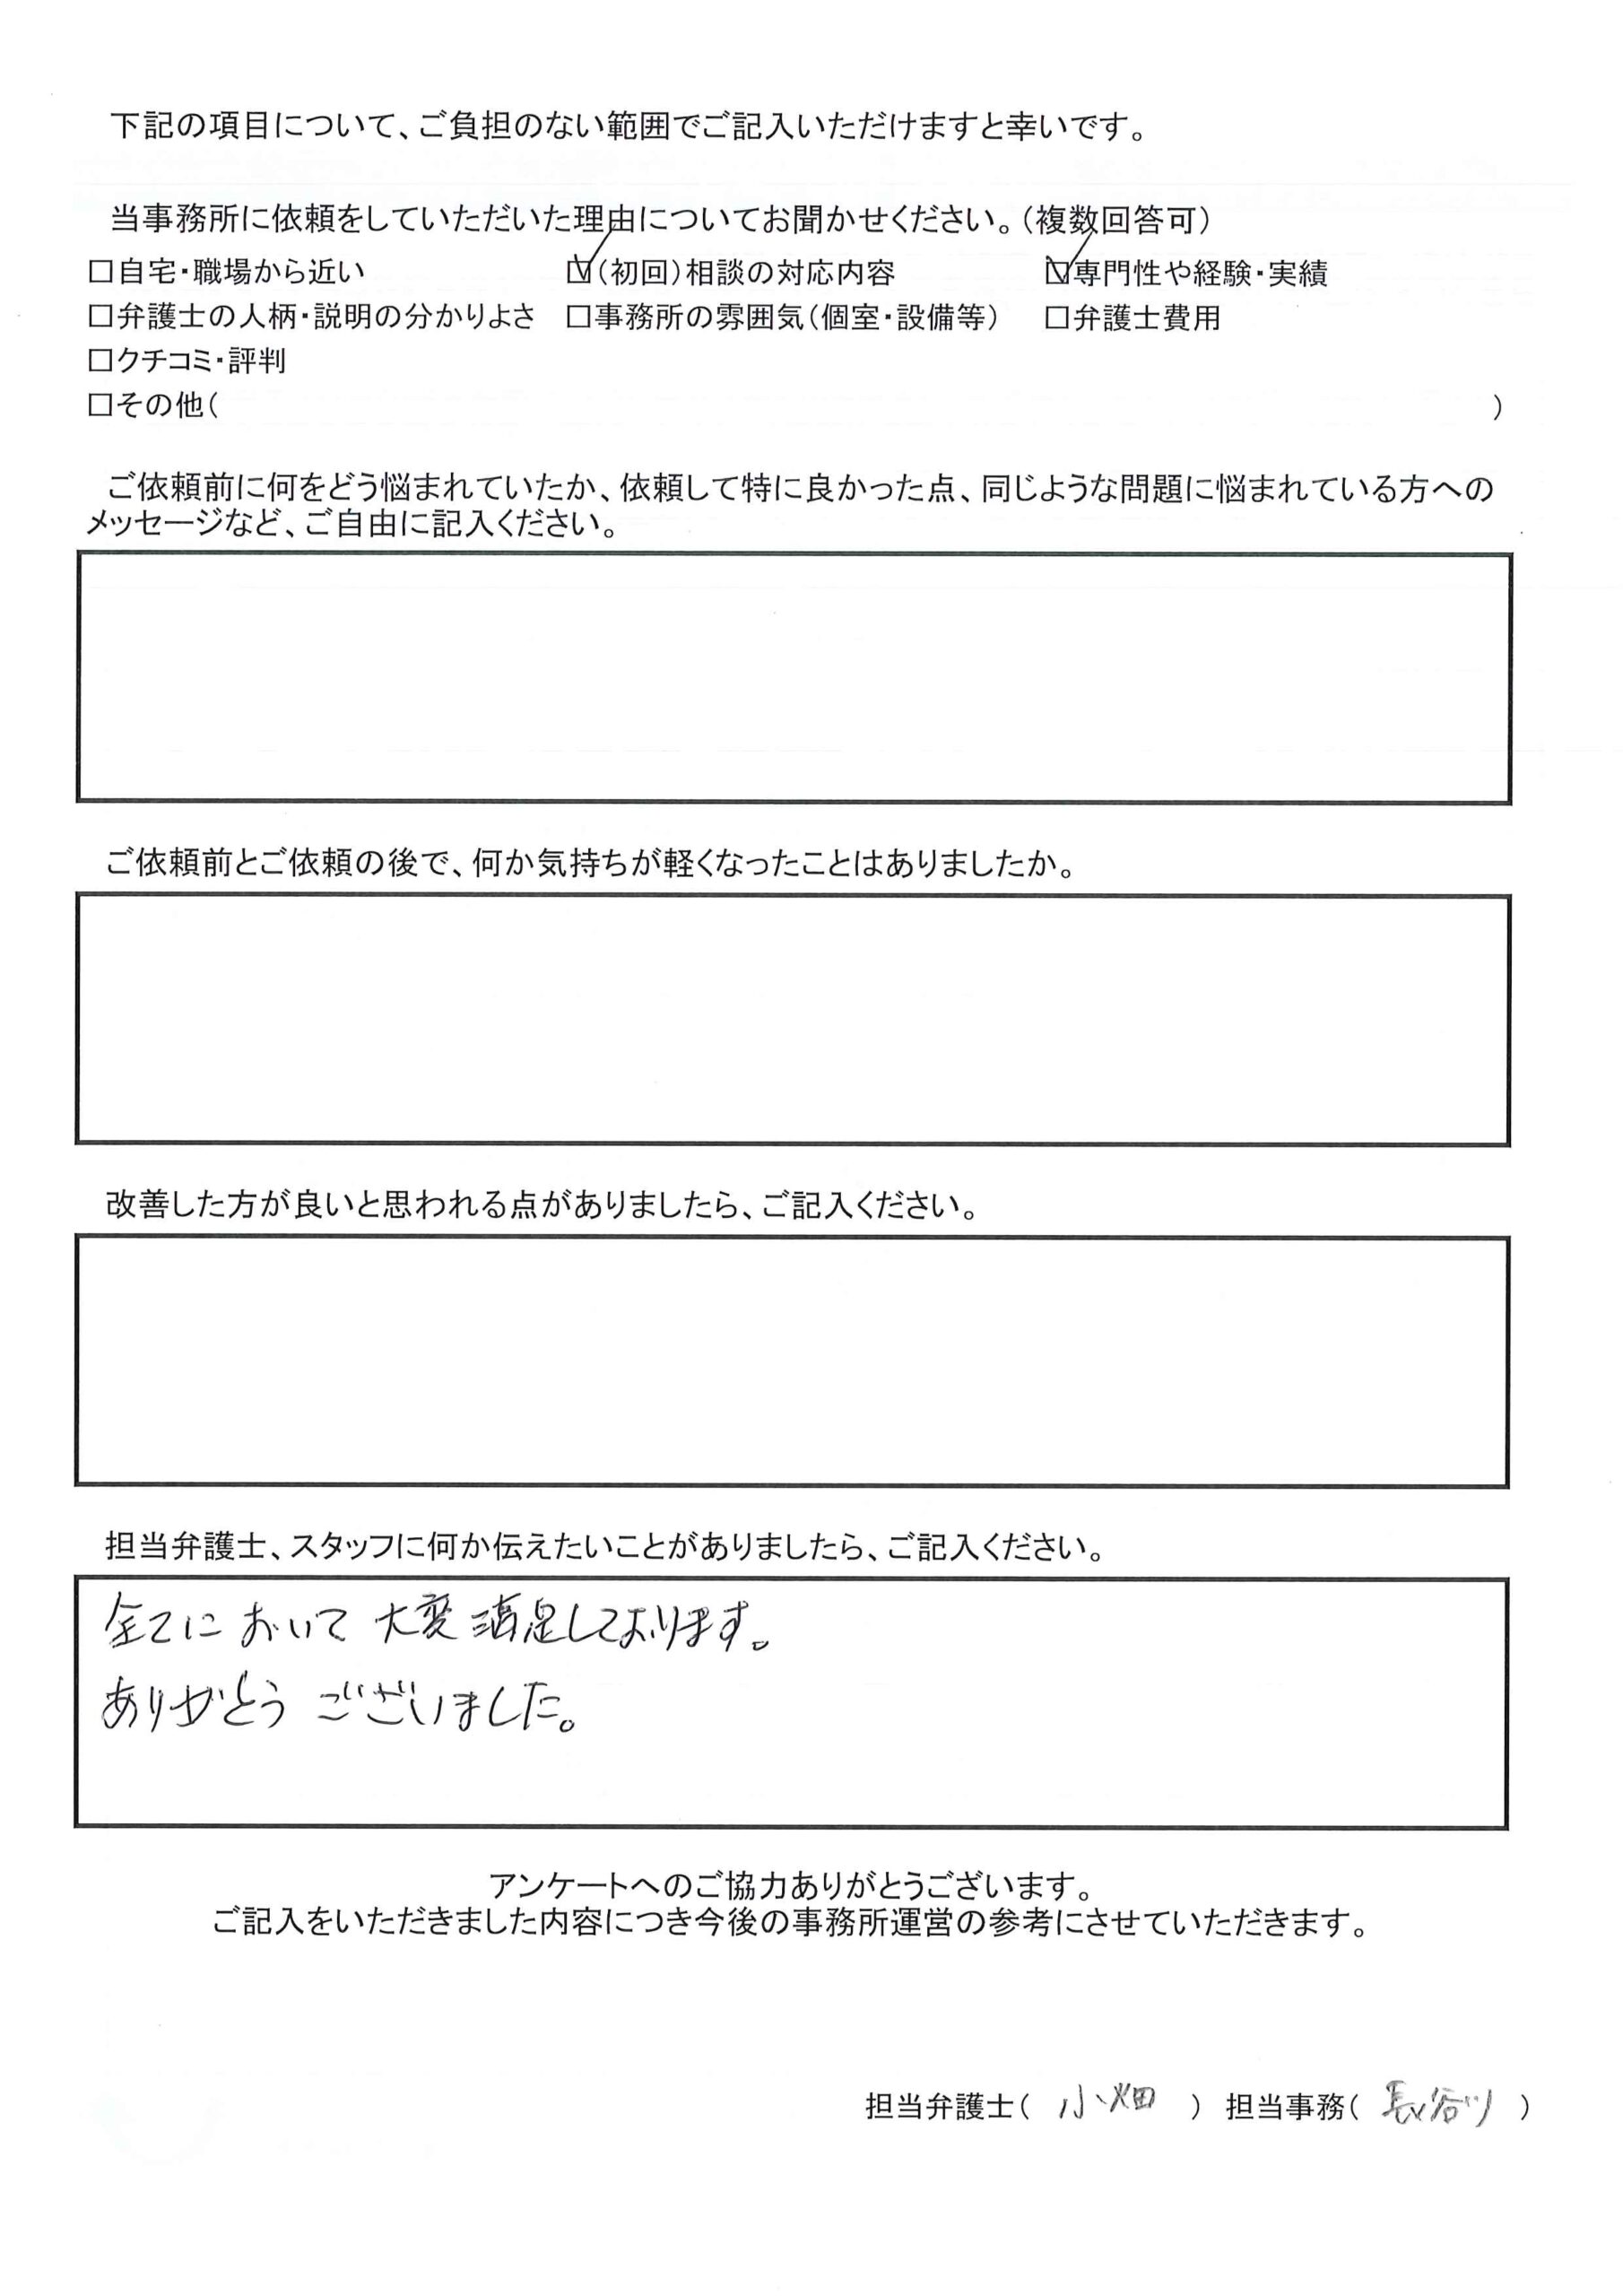 下記の項目について、ご負担のない範囲でご記入いただけますと幸いです。
当事務所に依頼をしていただいた理由についてお聞かせください。(複数回答可)
□自宅・職場から近い ☑(初回)相談の対応内容 ☑専門性や経験・実績
□弁護士の人柄・説明の分かりよさ □事務所の雰囲気(個室・設備等) □弁護士費用
□クチコミ・評判
□その他( )
ご依頼前に何をどう悩まれていたか、依頼して特に良かった点、同じような問題に悩まれている方への
メッセージなど、ご自由に記入ください。
ご依頼前とご依頼の後で、何か気持ちが軽くなったことはありましたか。
改善した方が良いと思われる点がありましたら、ご記入ください。
担当弁護士、スタッフに何か伝えたいことがありましたら、ご記入ください。
全てにおいて大変満足しております。
ありがとうございました。
アンケートへのご協力ありがとうございます。
ご記入をいただきました内容につき今後の事務所運営の参考にさせていただきます。
担当弁護士( 小畑 ) 担当事務( 長谷川 )